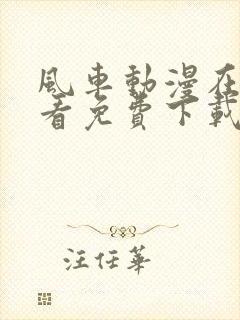 風車動漫在
看免費下載
汪任華